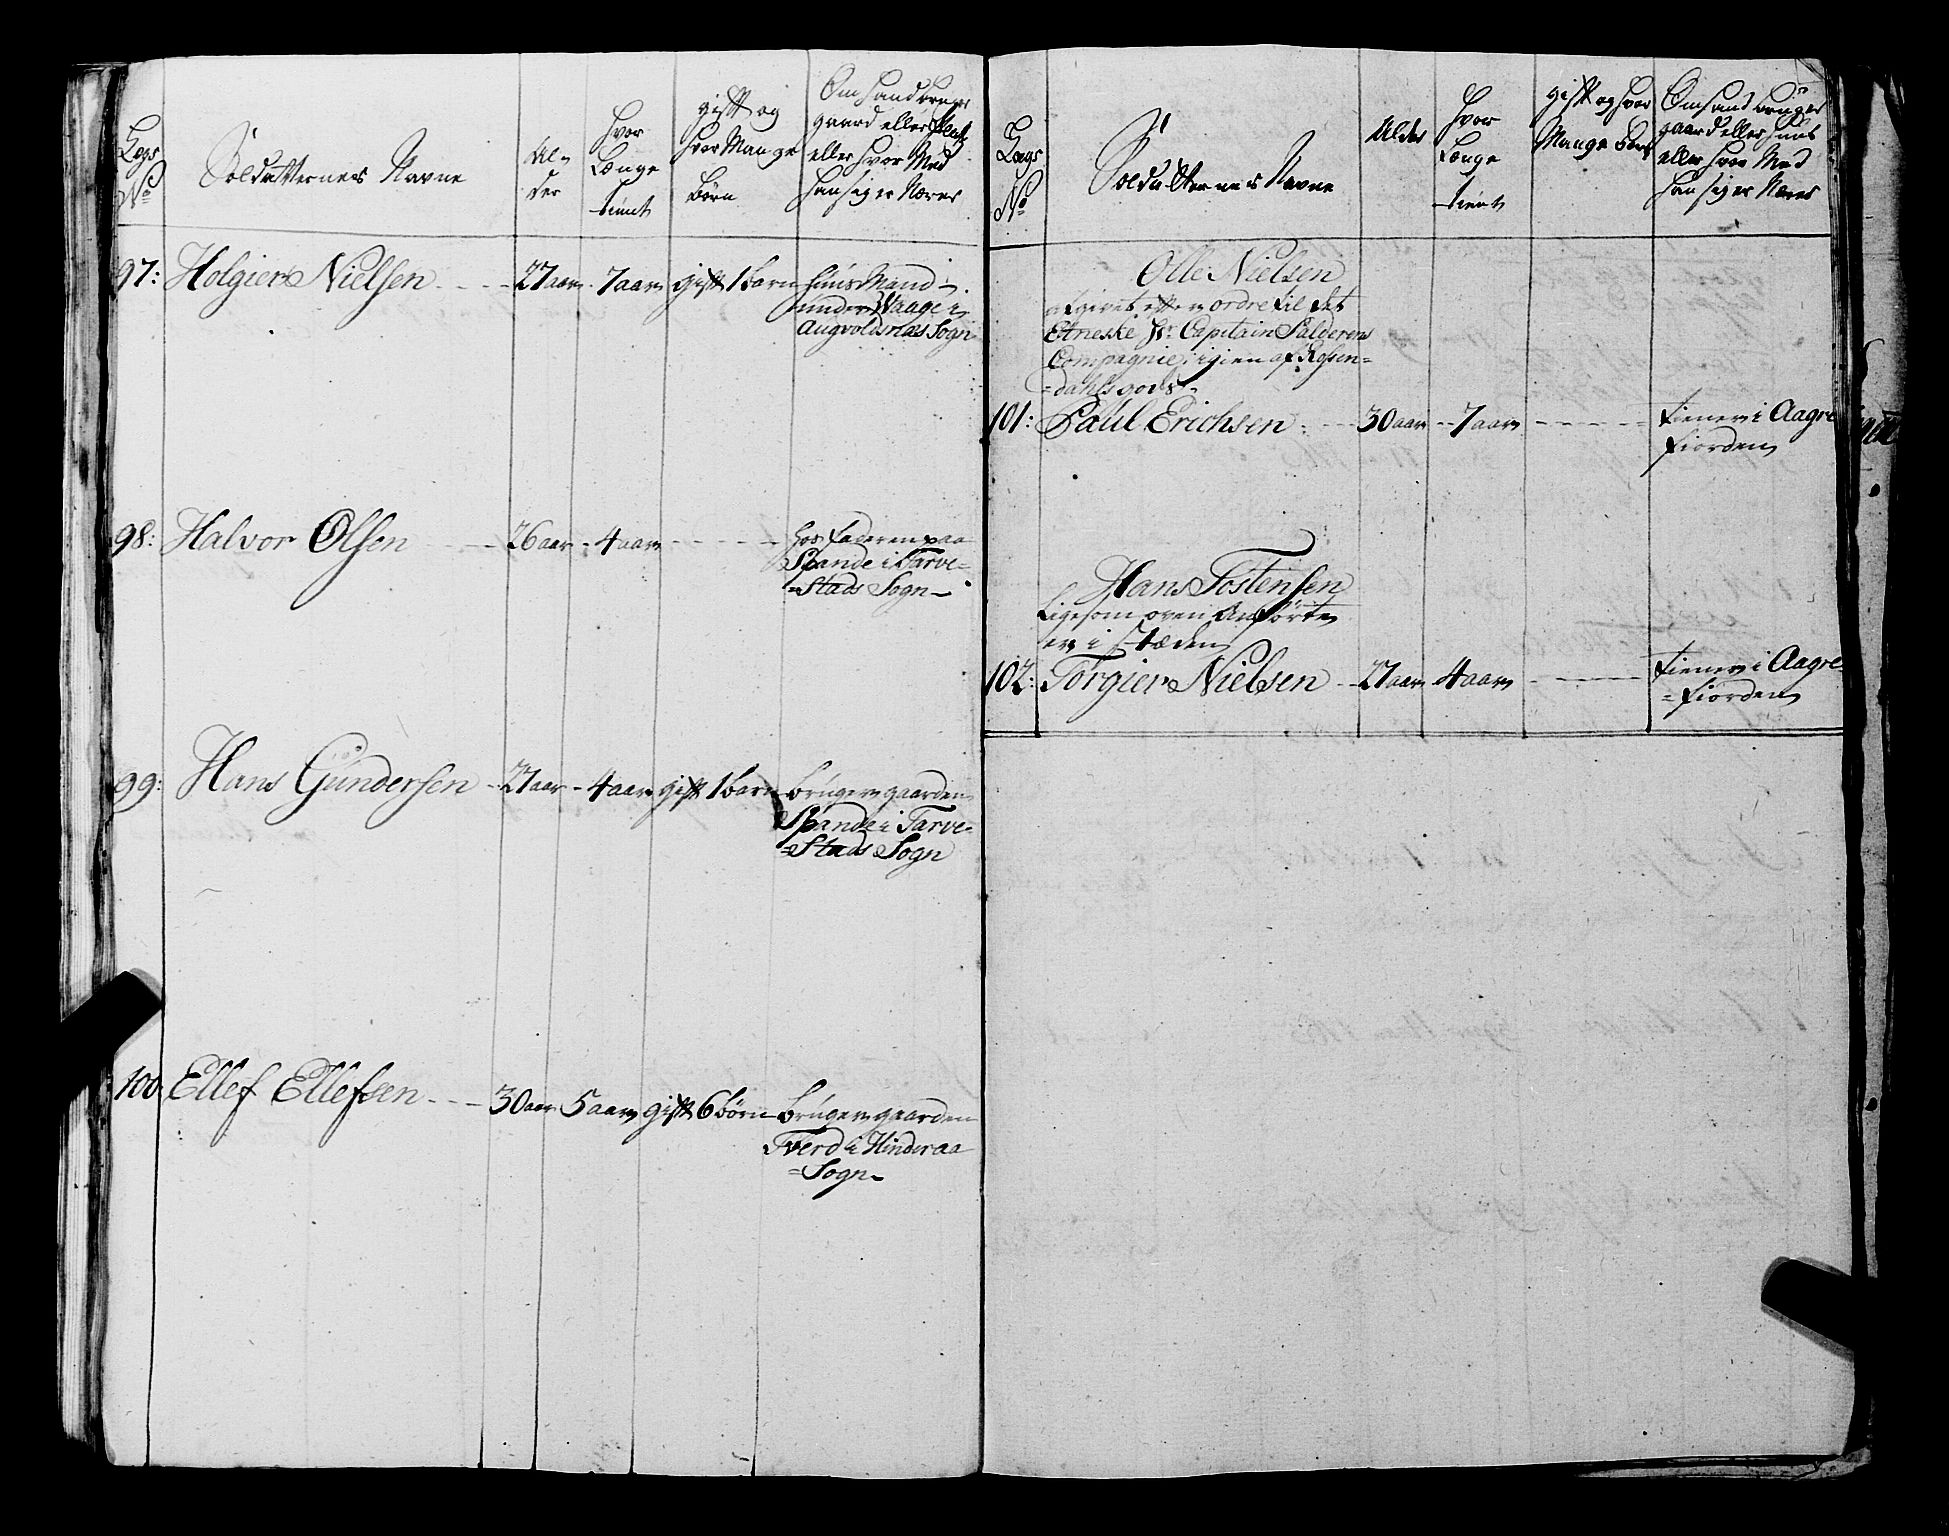 Legs
No
Soldatternes Navne
Al-
der
hvor
Længe
tient
gift og
hvor Mange
børn
Om hand bruger
gaard eller
eller hvor Med
han sig er Nærer
97: Holgier Nielsen 27 aar 7 aar gift 1 barn huus Mand
under Waage i
Augvoldsnæs Sogn
98: Halvor Olsen 26 aar 4 aar hos faderen paa
Spande i Tarve-
-Stads Sogn
99: Hans Gundersen 27 aar 4 aar gift 1 barn bruger gaarden
Spande i Tarve-
-Stads Sogn
100 Ellef Ellefsen 30 aar 5 aar gift 6 børn bruger gaarden
Tverd i Hinderaa
-Sogn
Legs
No
Soldatternes Navne
Alder
hvor
Længe
tient
gift og hvor
Mange børn
Om hand bruger
gaard eller huus
eller hvor Med
han sig er Nærer
Olle Nielsen
afgivet efter ordre til det
Etneske Hr. Capitain Salderens
Compagnie, igien af Rosen-
-dahls gods
101: Paul Erichsen 30 aar 7 aar tiener i Aagre
fiorden
Hans Tostensen
Ligesom oven Anførte
er i stæden
102: Torgier Nielsen 27 aar 4 aar tiener i Aagre-
-fiorden